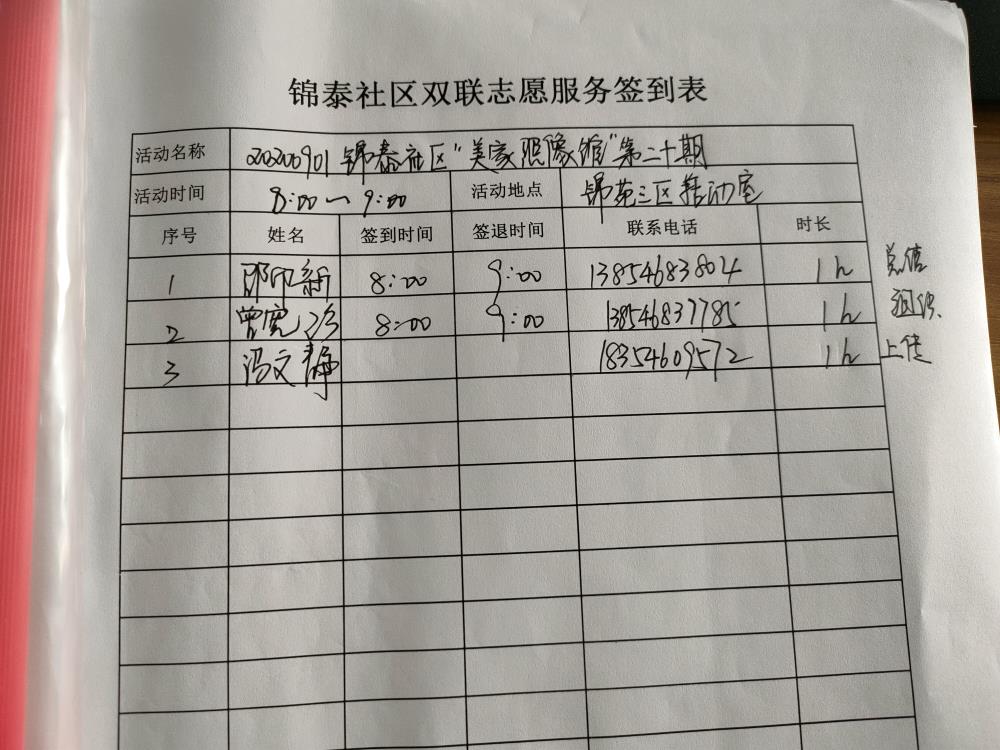 锦泰社区双联志愿服务签到表
活动名称 20200901 锦泰社区"美家照像馆"第二十期
活动时间 8:00~9:00 活动地点 锦苑三区活动室
序号 姓名 签到时间 签退时间 联系电话 时长
1 邢印新 8:00 9:00 13854683804 1h 总结
2 曾宽珍 8:00 9:00 138546837785 1h 组织
3 冯文静 18354609572 1h 上传